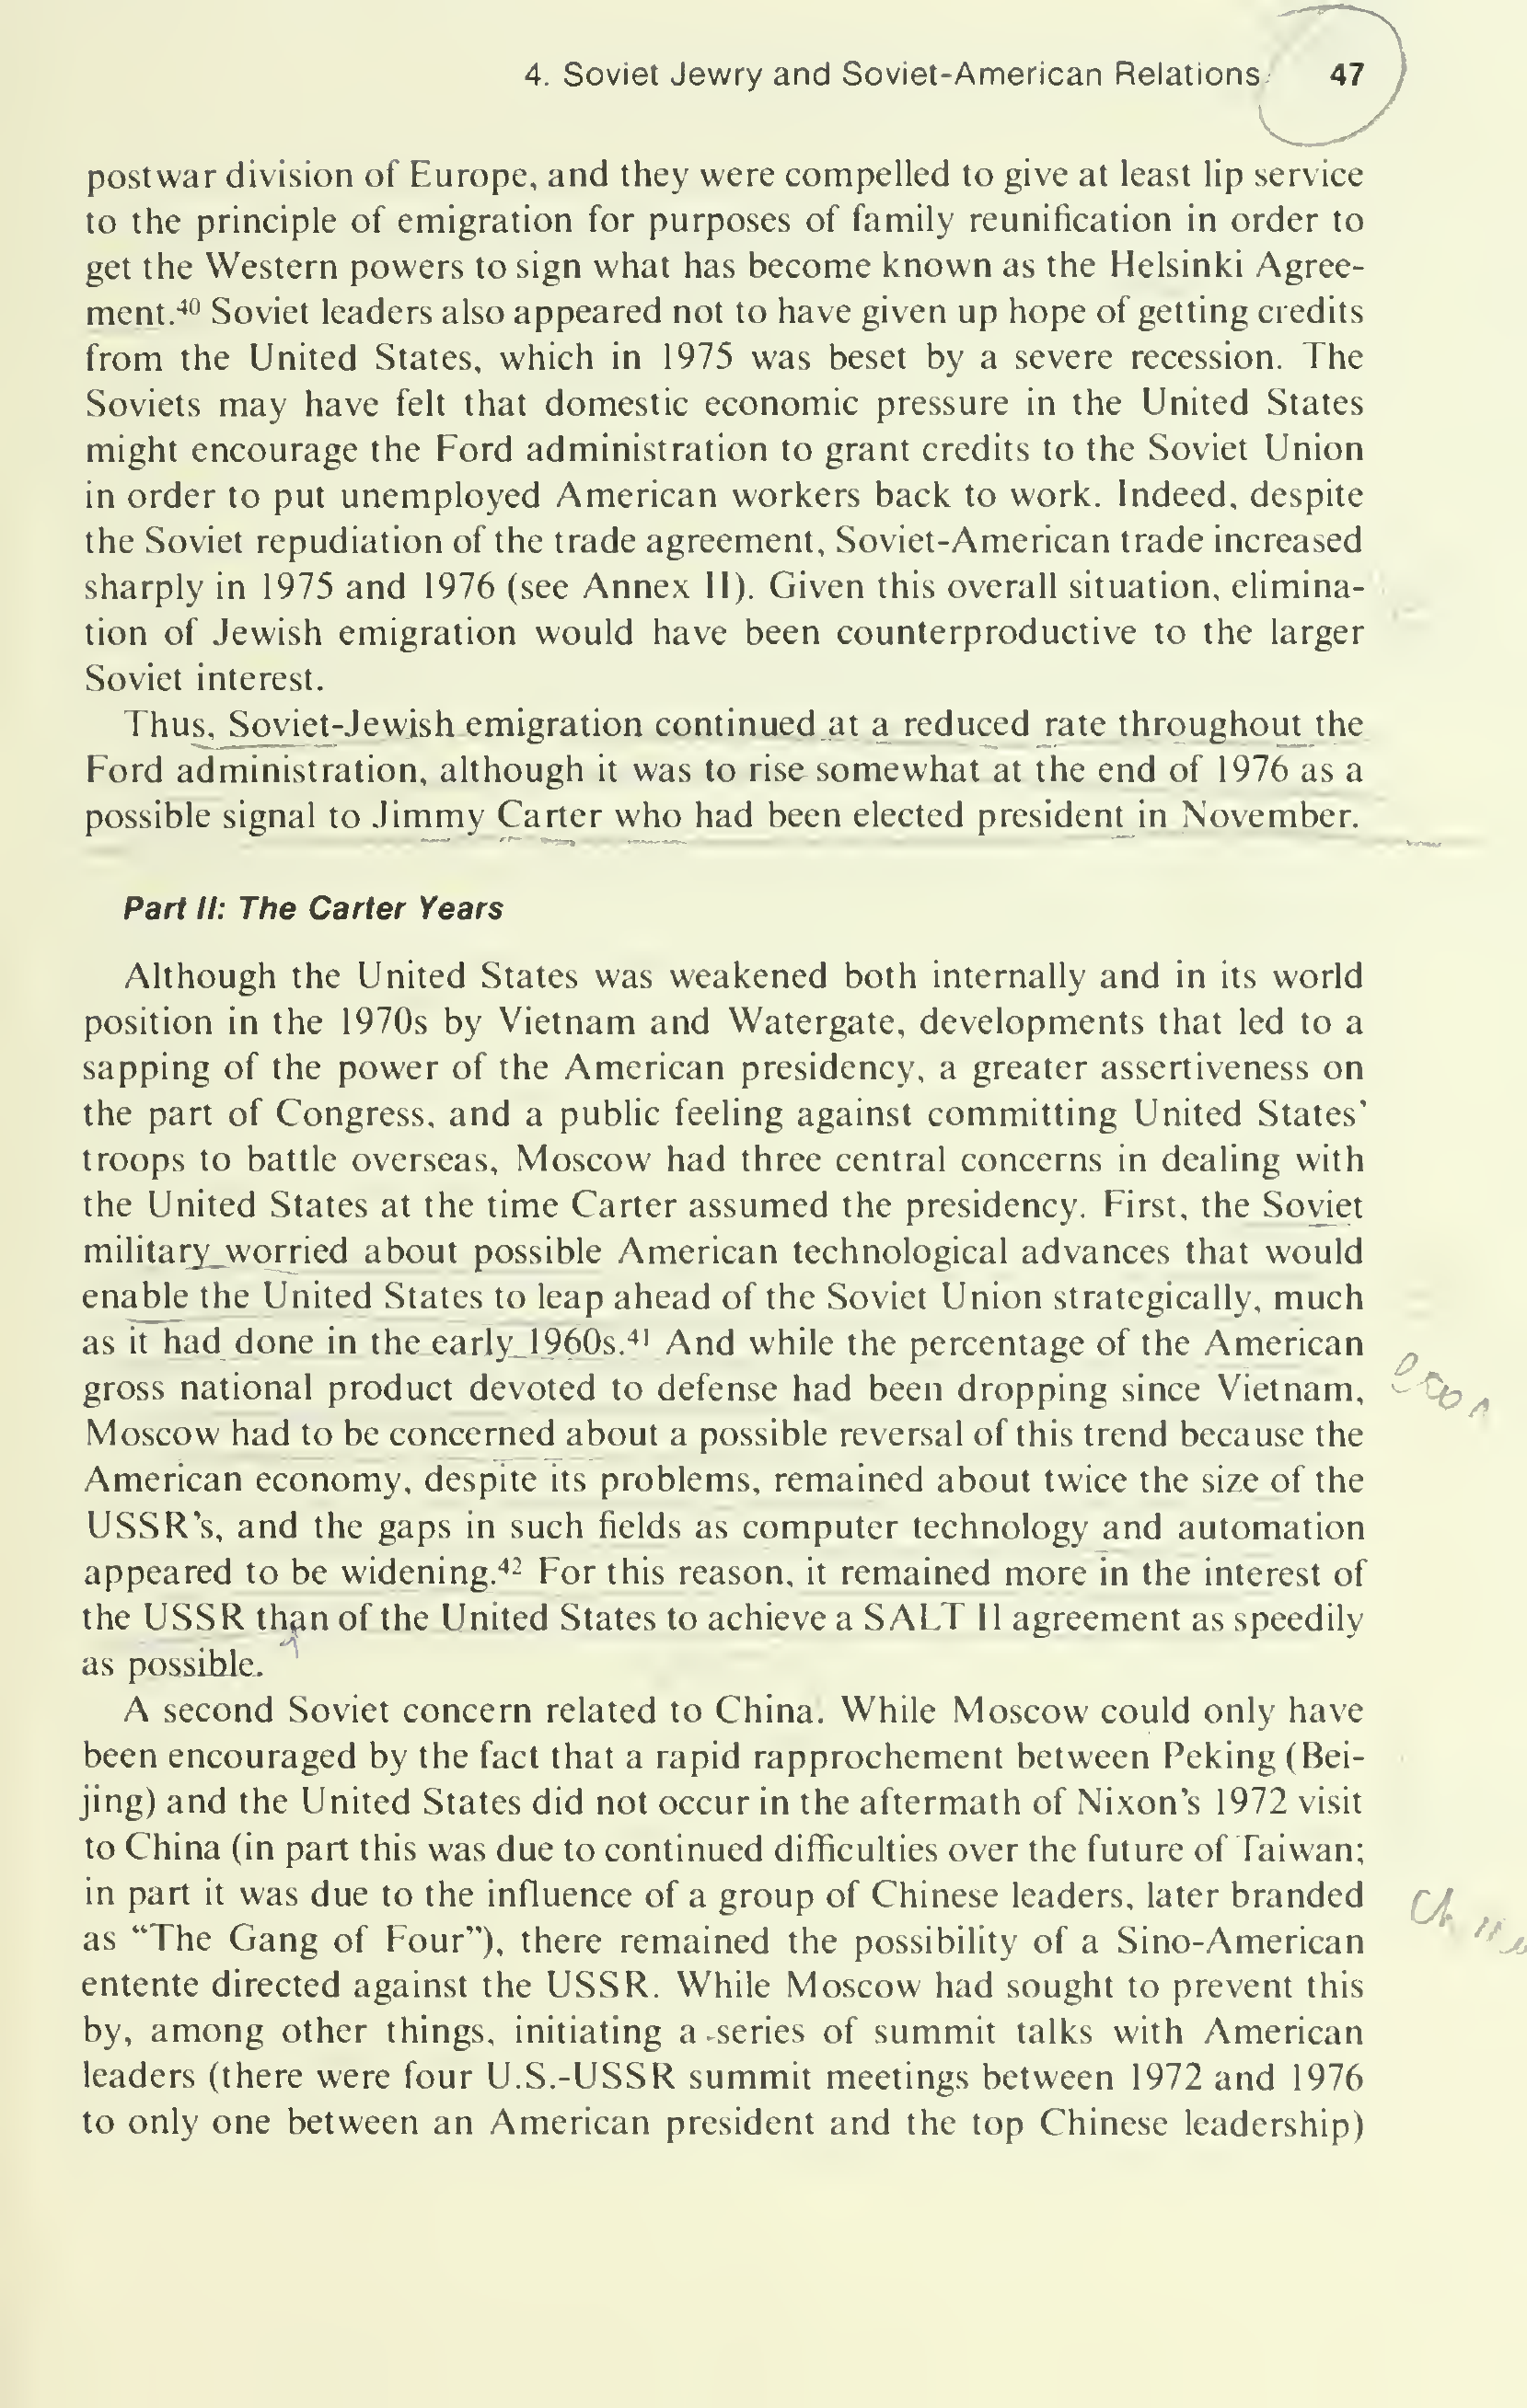 4. Soviet Jewry and Soviet-American Relations 47
postwar division of Europe, and they were compelled to give at least lip service
to the principle of emigration for purposes of family reunification in order to
get the Western powers to sign what has become known as the Helsinki Agree-
ment.⁴⁰ Soviet leaders also appeared not to have given up hope of getting credits
from the United States, which in 1975 was beset by a severe recession. The
Soviets may have felt that domestic economic pressure in the United States
might encourage the Ford administration to grant credits to the Soviet Union
in order to put unemployed American workers back to work. Indeed, despite
the Soviet repudiation of the trade agreement, Soviet-American trade increased
sharply in 1975 and 1976 (see Annex II). Given this overall situation, elimina-
tion of Jewish emigration would have been counterproductive to the larger
Soviet interest.
Thus, Soviet-Jewish emigration continued at a reduced rate throughout the
Ford administration, although it was to rise somewhat at the end of 1976 as a
possible signal to Jimmy Carter who had been elected president in November.
Part II: The Carter Years
Although the United States was weakened both internally and in its world
position in the 1970s by Vietnam and Watergate, developments that led to a
sapping of the power of the American presidency, a greater assertiveness on
the part of Congress, and a public feeling against committing United States'
troops to battle overseas, Moscow had three central concerns in dealing with
the United States at the time Carter assumed the presidency. First, the Soviet
military worried about possible American technological advances that would
enable the United States to leap ahead of the Soviet Union strategically, much
as it had done in the early 1960s.⁴¹ And while the percentage of the American
gross national product devoted to defense had been dropping since Vietnam,
Moscow had to be concerned about a possible reversal of this trend because the
American economy, despite its problems, remained about twice the size of the
USSR's, and the gaps in such fields as computer technology and automation
appeared to be widening.⁴² For this reason, it remained more in the interest of
the USSR than of the United States to achieve a SALT II agreement as speedily
as possible.
A second Soviet concern related to China. While Moscow could only have
been encouraged by the fact that a rapid rapprochement between Peking (Bei-
jing) and the United States did not occur in the aftermath of Nixon's 1972 visit
to China (in part this was due to continued difficulties over the future of Taiwan;
in part it was due to the influence of a group of Chinese leaders, later branded
as "The Gang of Four"), there remained the possibility of a Sino-American
entente directed against the USSR. While Moscow had sought to prevent this
by, among other things, initiating a series of summit talks with American
leaders (there were four U.S.-USSR summit meetings between 1972 and 1976
to only one between an American president and the top Chinese leadership)